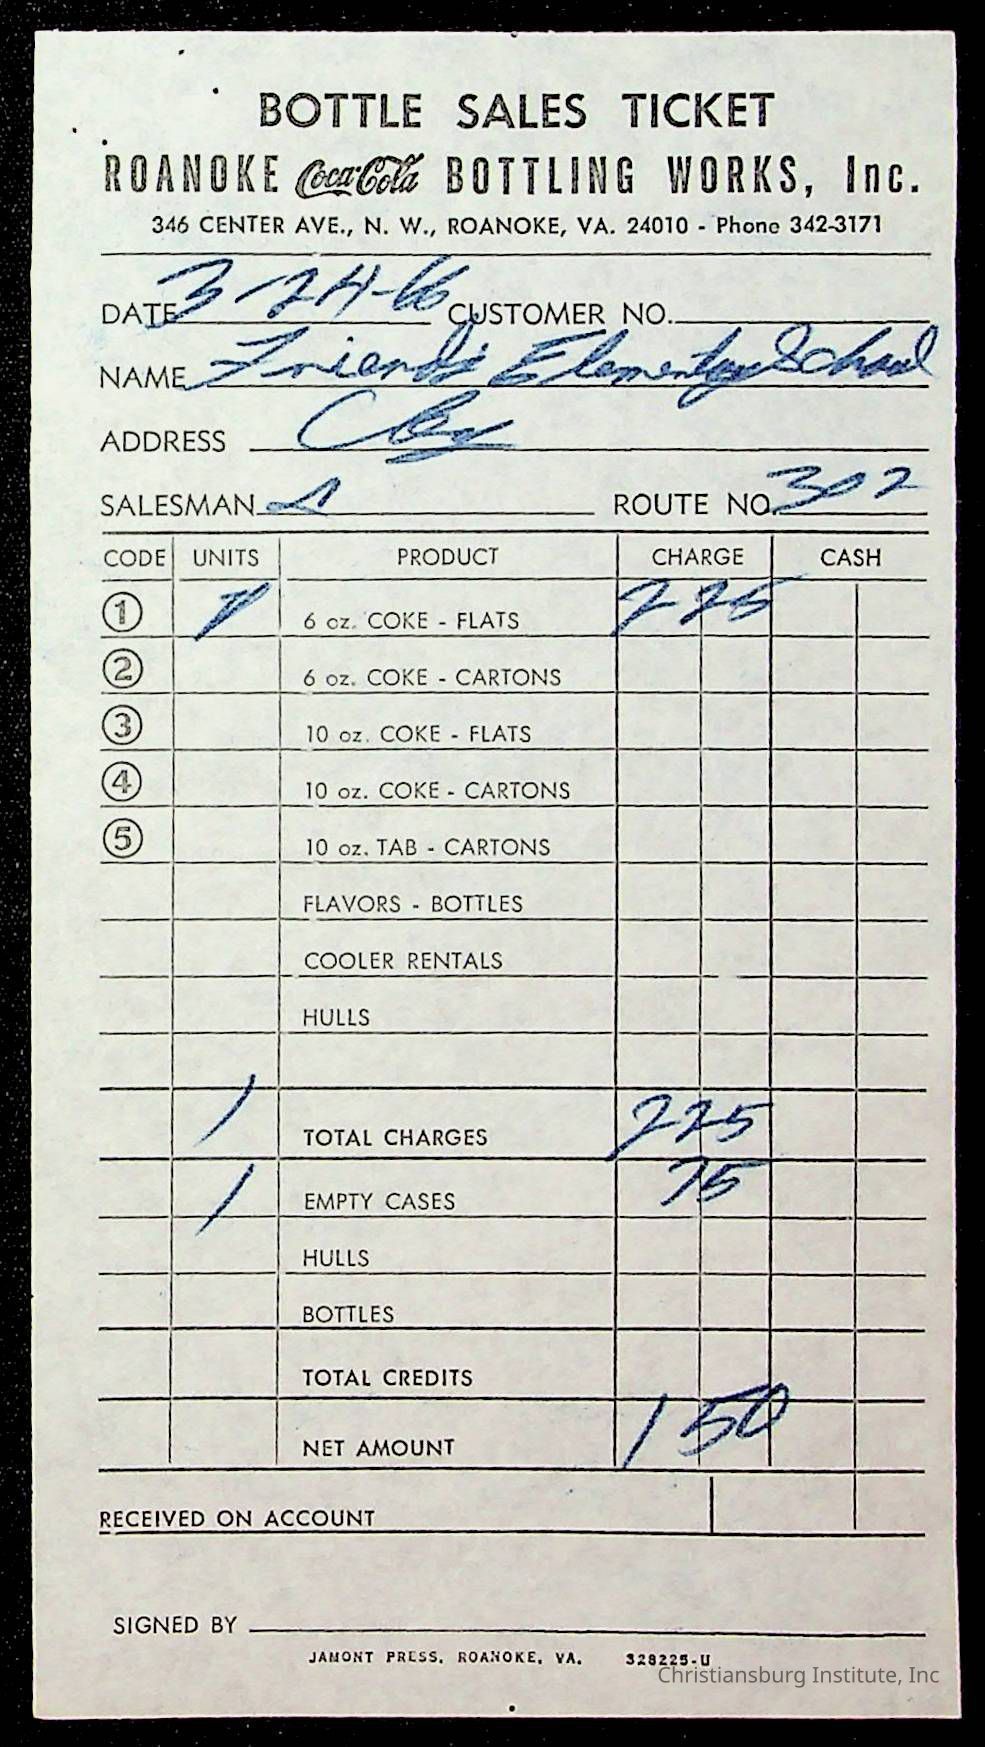 BOTTLE SALES TICKET
ROANOKE Coca-Cola BOTTLING WORKS, Inc.
346 CENTER AVE., N. W., ROANOKE, VA. 24010 - Phone 342-3171
DATE 3-24-66 CUSTOMER NO.
NAME Friends Elementary School
ADDRESS
SALESMAN ROUTE NO. 302
CODE UNITS PRODUCT CHARGE CASH
1 6 oz. COKE - FLATS 2 25
2 6 oz. COKE - CARTONS
3 10 oz. COKE - FLATS
4 10 oz. COKE - CARTONS
5 10 oz. TAB - CARTONS
FLAVORS - BOTTLES
COOLER RENTALS
HULLS
1 TOTAL CHARGES 2 25
1 EMPTY CASES 75
HULLS
BOTTLES
TOTAL CREDITS
NET AMOUNT 1 50
RECEIVED ON ACCOUNT
SIGNED BY
JAMONT PRESS, ROANOKE, VA. 328225-U
Christiansburg Institute, Inc